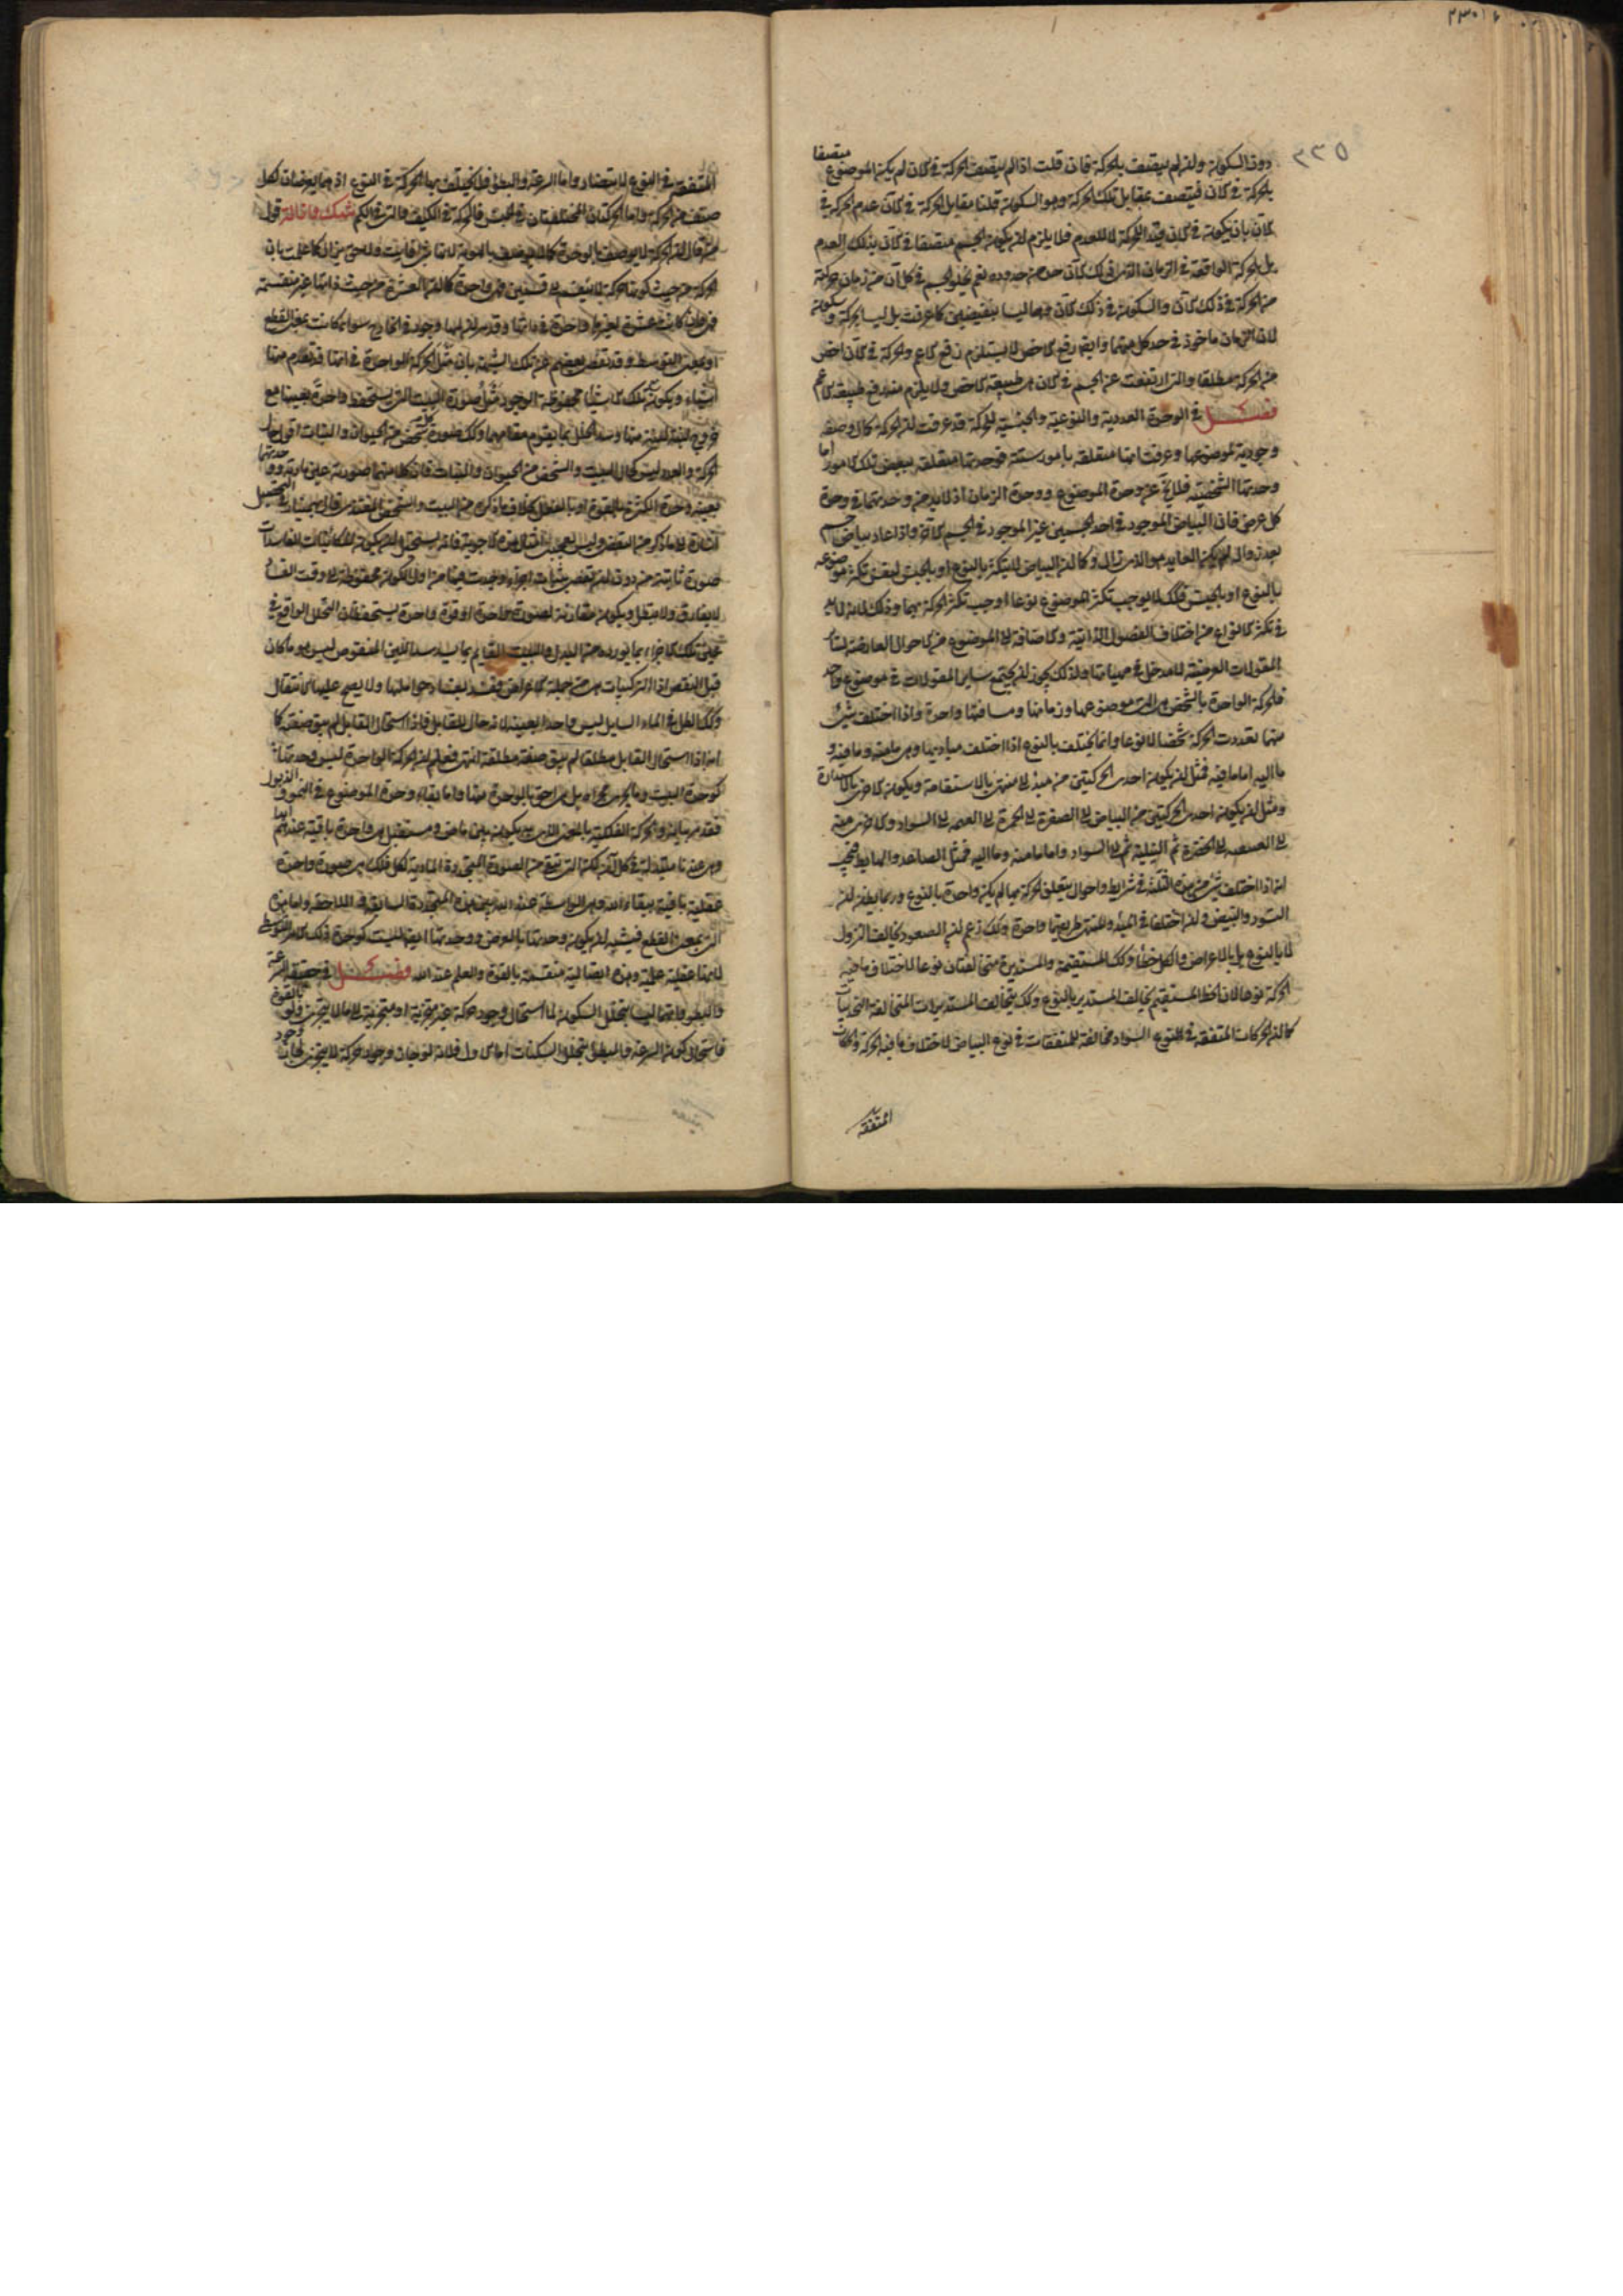 ٢٣٥
دون السكون وان لم يتصف بالحركة فان قلت اذا لم يتصف بالحركة في الان لم يكن الموضوع متصفا
بالحركة في الان فيتصف بمقابل تلك الحركة وهو السكون قلنا مقابل الحركة في الان عدم الحركة في
الان بان يكون في الان قيد الحركة لا للعدم فلا يلزم ان يكون الجسم متصفا في الان بذلك العدم
بل الحركة الواقعة في الزمان الذي ذلك الان حد من حدوده نعم يخلو الجسم في كل آن من زمان حركته
من الحركة في ذلك الان والسكون في ذلك الان فهما ليسا بنقيضين كما عرفت بل ليسا بحركة وسكون
لان الزمان ماخوذ في حد كل منهما وايضا رفع الاخص لا يستلزم رفع الاعم والحركة في الان اخص
من الحركة مطلقا والتي ارتفعت عن الجسم في الان هي طبيعة الاخص ولا يلزم منه رفع طبيعة الاعم
فصل في الوحدة العددية والنوعية والجنسية للحركة قد عرفت ان الحركة كمال وصفة
وجودية لموضوعها وعرفت انها متعلقة بامور ستة فوحدتها متعلقة ببعض تلك الامور اما
وحدتها الشخصية فلا يخ عن وحدة الموضوع ووحدة الزمان اذ لا بد منه وحدتهما في وحدة
كل عرض فان البياض الموجود في احد الجسمين غير الموجود في الجسم الاخر واذا عاد بياض جسم
بعد زواله لم يكن العايد هو الذي زال وكما ان البياض لا يتكثر بالنوع او بالجنس لبعض تكثر موضوعه
بالنوع او بالجنس فكك لا يوجب تكثر الموضوع نوعا او جنسا تكثر الحركة بهما وذلك لانه لا بد
في تكثر الانواع من اختلاف الفصول الذاتية والاضافة الى الموضوع من الاحوال العارضة لسائر
المقولات العرضية لا مدخل في مهياتها ولذلك يجوز ان يجتمع ساير المقولات في موضوع واحد
فالحركة الواحدة بالشخص هي التي موضوعها وزمانها ومسافتها واحدة واذا اختلف شيء
منها تعددت الحركة شخصا لا نوعا وانما يختلف بالنوع اذا اختلف مباديها وهي ما منه وما فيه و
ما اليه اما ما فيه فمثل ان يكون احدى الحركتين من مبدء الى منتهى بالاستقامة ويكون الاخرى بالاستدارة
ومثل ان يكون احدى الحركتين من البياض الى الصفرة الى الحمرة الى القتمة الى السواد والاخرى منه
الى الفستقية الى الخضرة ثم النيلية ثم الى السواد واما ما منه وما اليه فمثل الصاعد والهابط فيجب
انه اذا اختلف شيء من هذه الثلثة في شرايط واحوال يتعلق الحركة بها لم يكن واحدة بالنوع وربما يظن ان
التسود والتبيض وان اختلفا في المبدء والمنتهى طريقهما واحدة وكك زعم ان الصعود يخالف النزول
لا بالنوع بل بالاعراض والكل خطأ وكك المستقيمة والمستديرة متخالفتان نوعا لاختلاف ما فيه
الحركة نوعا لان الخط المستقيم يخالف المستدير بالنوع وكك يتخالف المستديرات المتخالفة التحديبات
كما ان الحركات المتفقة في النوع السواد مخالفة للمتفقات في نوع البياض لاختلاف ما فيه الحركة والحركات
المتفقه
المتفقة في النوع لا يتضاد واما السرعة والبطؤ فلا يختلف بهما الحركة في النوع اذ هما يعرضان لكل
صنف من الحركة واما الحركتان المختلفتان في الجنس فالحركة في الكيف والتي في الكم شك وازالة قول
من قال ان الحركة لا يوصف بالوحدة كما لا يوصف بالهوية لانها
الحركة من حيث كونها حركة لا ينقسم الى قسمين فهي واحدة كما ان العشرة من حيث ذاتها غير منقسمة
وقد مر ان لها وجود في الخارج سواء كانت بمعنى القطع
او بمعنى التوسط وقد تفصى بعضهم عن تلك الشبهة بان مثل الحركة الواحدة في انها قد تعدم منها
اشياء ويكون مع تلك الاشياء محفوظة الوجود مثل صورة البيت التي تستحفظ واحدة بعينها مع
خروج لبنة لبنة منها وسد الخلل بما يقوم مقامها وكك صورة كل شخص من الحيوان والنبات اقول حال
الحركة والعدد ليس كحال البيت والشخص من الحيوان والنبات فان كلا منهما صورته عين مادته ووحدتهما
بعينه وحدة الكثرة بالقوة او بالفعل بخلاف ما ذكره من البيت والشخص المغتذي قال بهمنيار في التحصيل
اشارة الى ما ذكر من التفصي وليس يعجبني امثال هذه الاجوبة فانه يستحيل ان يكون للكائنات الفاسدات
صورة ثابتة من دون ان تعتمد ثبات اجزاء وجدت هيهنا من اول الكون محفوظة الى وقت الفساد
لا يفارق ولا يتبدل ويكون مقارنة لصورة واحدة او قوة واحدة يستحفظان التحلل الواقع في
غير تلك الاجزاء بما يورده من البدل والبيت القائم بما يسد سد اللبن المنقوض ليس هو ما كان
قبل النقض اذ التركيبات هي من جملة الاعراض فتفسد بفساد حواملها ولا يصح عليها الانتقال
وكك الظل في الماء السايل ليس واحدا بعينه لانه حال للقابل فاذا استحال القابل لم يبق صفته كما
انه اذا استحال القابل مطلقا لم يبق صفته مطلقة انتهى فعلم ان الحركة الواحدة ليس وحدتها
كوحدة البيت وما يجري مجراه بل هي احق بالوحدة منها واما بقاء وحدة الموضوع في النمو والذبول
فقد مر بيانه والحركة الفلكية بالمعنى الذي يكون بين ماض ومستقبل هي واحدة باقية عندهم ابدا
وهي عندنا متبدلة في كل آن لكنها الصورة المتجددة المادية لكل فلك هي صورة واحدة
عقلية باقية ببقاء الله وهي الواسطة عند الله بين هذه المتجددة السابقة واللاحقة واما هذه
التي بمعنى القطع فيشبه ان يكون وحدتها بالعرض ووحدتها ايضا ليست كوحدة ذلك الامر التوسط
لانها عقلية علمية وهذه اتصالية منقسمة بالقوة والعلم عند الله فصل في حقيقة السرعة
والبطؤ وانهما ليسا بتخلل السكون لما استحال وجود حركة غير متجزية او متجزية الى ما لا يتجزى ولو بالقوة
فاستحال كون السرعة والبطؤ بتخلل السكنات اما الاول فلانه لو جاز وجود حركة لا يتجزى لجاز وجود